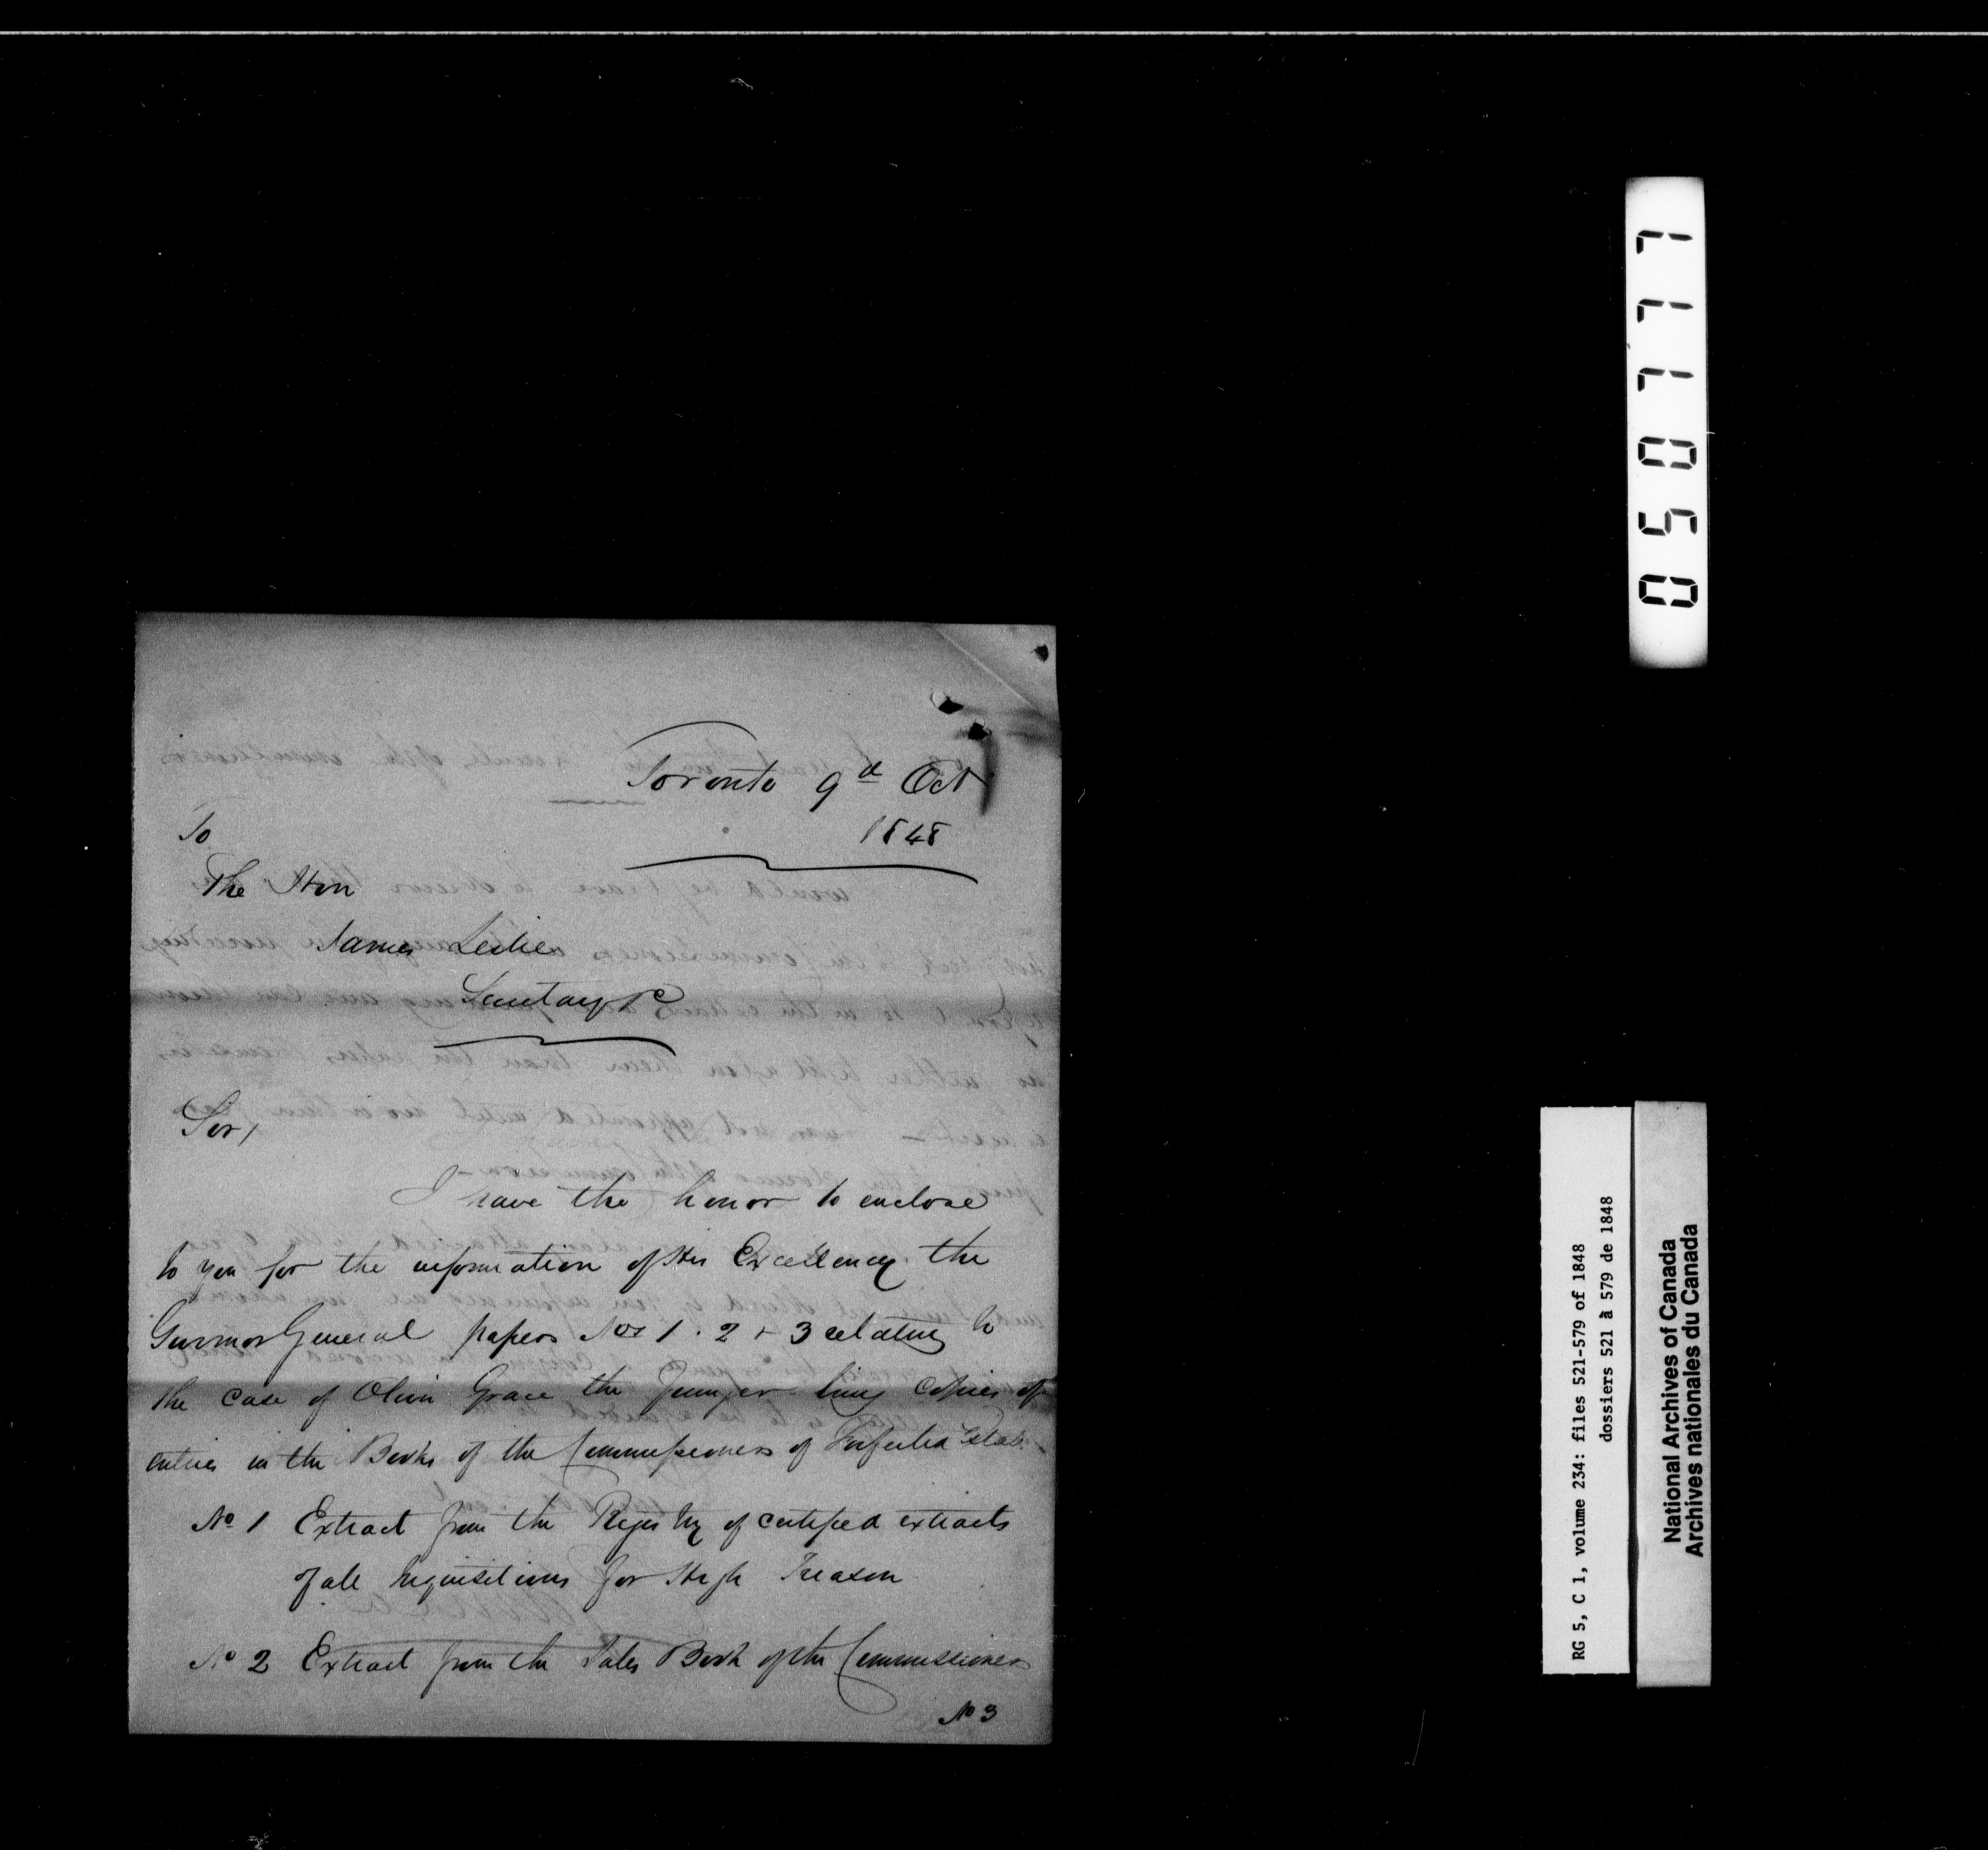 Toronto 9th Oct
1848
To
The Hon
James Leslie
Secretary &c
Sir,
I have the honor to enclose
to you for the information of His Excellency the
Governor General papers Nos 1. 2 + 3 relating to
the case of Grace the Younger being copies of
entries in the Books of the Commissioners of Forfeited Estates
No 1 Extract from the Registry of certified extracts
of all Inquisitions for High Treason
No 2 Extract from the Sales Book of the Commissioners
No 3
050777
RG 5, C 1, volume 234: files 521-579 of 1848
dossiers 521 à 579 de 1848
National Archives of Canada
Archives nationales du Canada